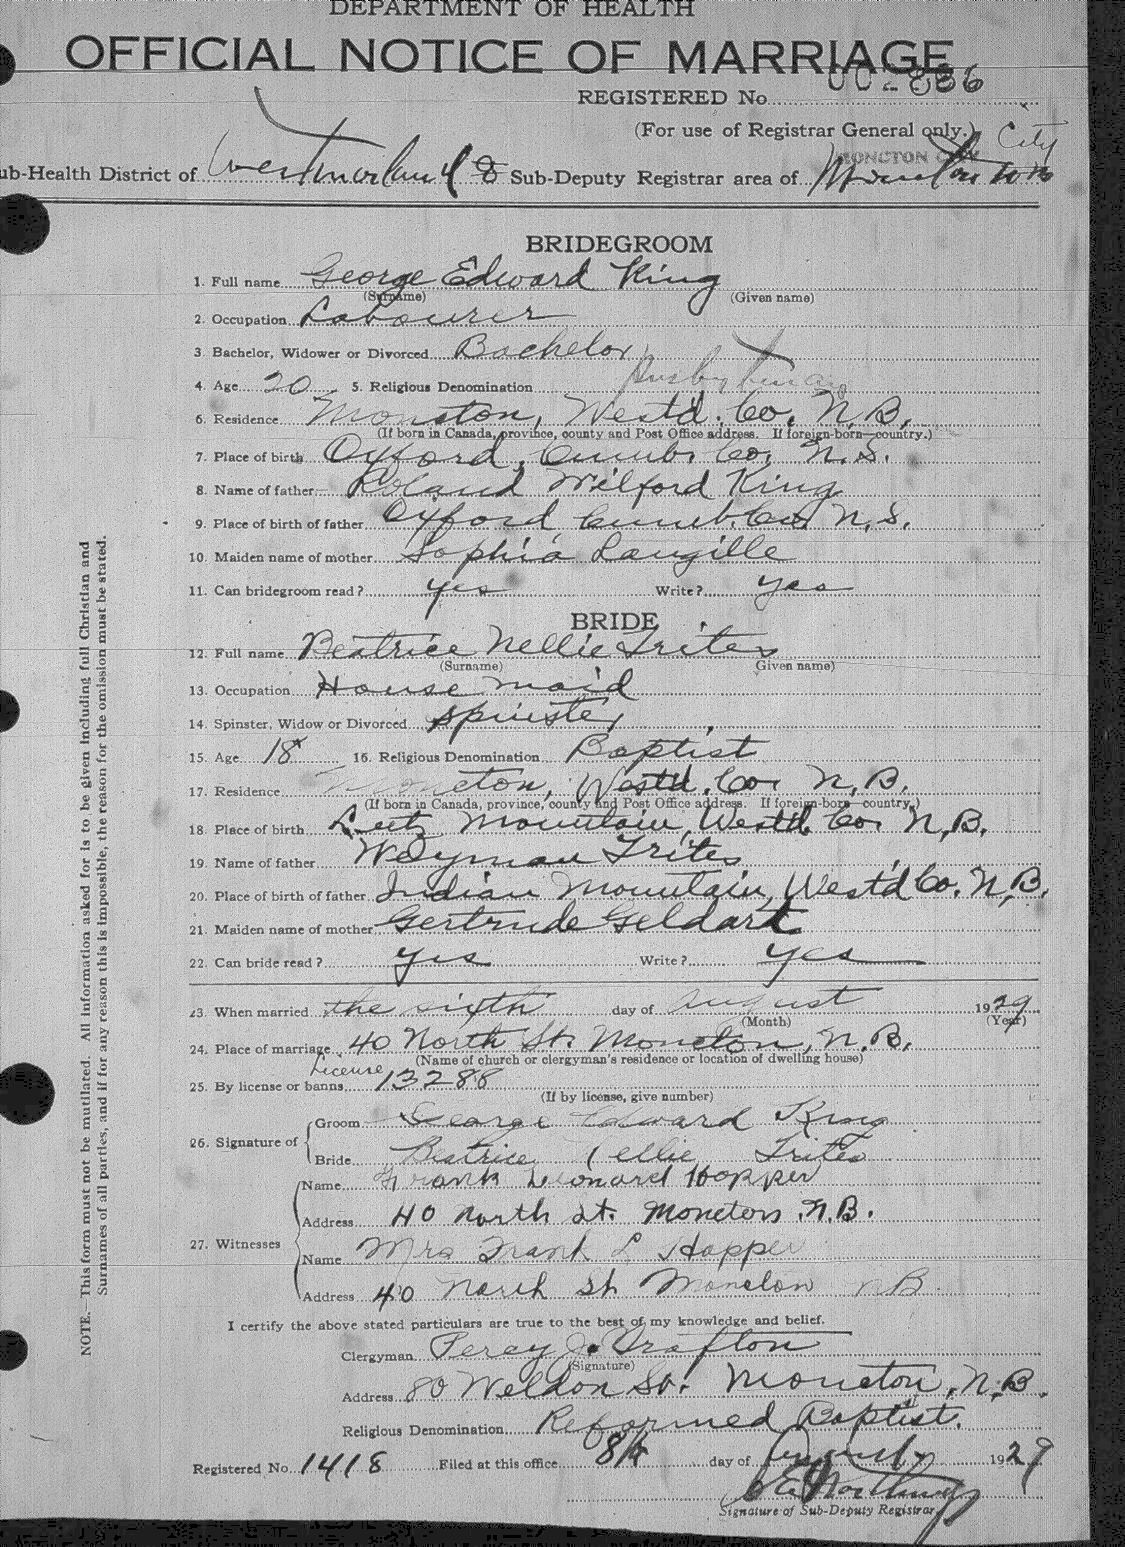 DEPARTMENT OF HEALTH
OFFICIAL NOTICE OF MARRIAGE
REGISTERED No. 002886
(For use of Registrar General only.) City
ub-Health District of Westmorland 8 Sub-Deputy Registrar area of MONCTON CITY Moncton
BRIDEGROOM
1. Full name George Edward King
(Surname) (Given name)
2. Occupation Labourer
3. Bachelor, Widower or Divorced Bachelor
4. Age 20 5. Religious Denomination
6. Residence Moncton, Westd. Co. N.B.
(If born in Canada, province, county and Post Office address. If foreign-born—country.)
7. Place of birth Oxford, Cumb. Co. N.S.
8. Name of father Roland Wilford King
9. Place of birth of father Oxford Cumb. Co. N.S.
10. Maiden name of mother Sophia Langille
11. Can bridegroom read? yes Write? yes
BRIDE
12. Full name Beatrice Nellie Trites
(Surname) Given name)
13. Occupation House maid
14. Spinster, Widow or Divorced Spinster
15. Age 18 16. Religious Denomination Baptist
17. Residence Moncton, Westd. Co. N.B.
(If born in Canada, province, county and Post Office address. If foreign-born—country.)
18. Place of birth Lutz Mountain, Westd. Co. N.B.
19. Name of father Weyman Trites
20. Place of birth of father Indian Mountain, West'd Co. N.B.
21. Maiden name of mother Gertrude Geldart
22. Can bride read? yes Write? yes
23. When married the sixth day of August 1929
(Month) (Year)
24. Place of marriage 40 North St. Moncton, N.B.
(Name of church or clergyman's residence or location of dwelling house)
25. By license or banns License 13288
(If by license, give number)
26. Signature of Groom George Edward King
Bride Beatrice Nellie Trites
27. Witnesses
Name Frank Leonard Hopper
Address 40 North St. Moncton N.B.
Name Mrs Frank L Hopper
Address 40 North St Moncton NB
I certify the above stated particulars are true to the best of my knowledge and belief.
Clergyman Percy J. Trafton
(Signature)
Address 80 Weldon St. Moncton, N.B.
Religious Denomination Reformed Baptist.
Registered No. 1418 Filed at this office 8th day of August 1929
Signature of Sub-Deputy Registrar
NOTE.—This form must not be mutilated. All information asked for is to be given including full Christian and
Surnames of all parties, and if for any reason this is impossible, the reason for the omission must be stated.